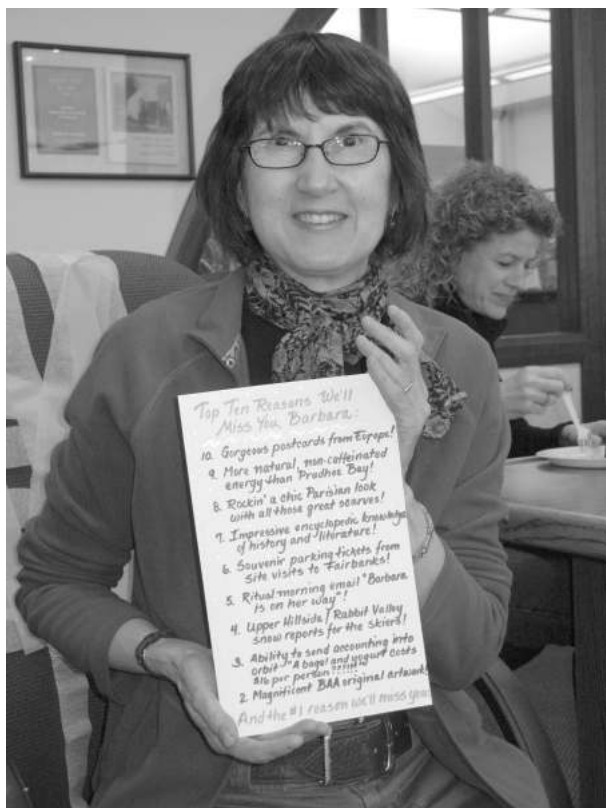 Top Ten Reasons We'll
Miss You, Barbara:
10. Gorgeous postcards from Europe!
9. More natural, non-caffeinated
energy than Prudhoe Bay!
8. Rockin' a chic Parisian look
with all those great scarves!
7. Impressive encyclopedic knowledge
of history and literature!
6. Souvenir parking tickets from
site visits to Fairbanks!
5. Ritual morning email "Barbara
is on her way"!
4. Upper Hillside/Rabbit Valley
snow reports for the skiers!
3. Ability to send accounting into
orbit "A bagel and yogurt costs
$16 per person
2. Magnificent BAA original artwork!
And the #1 reason we'll miss you: